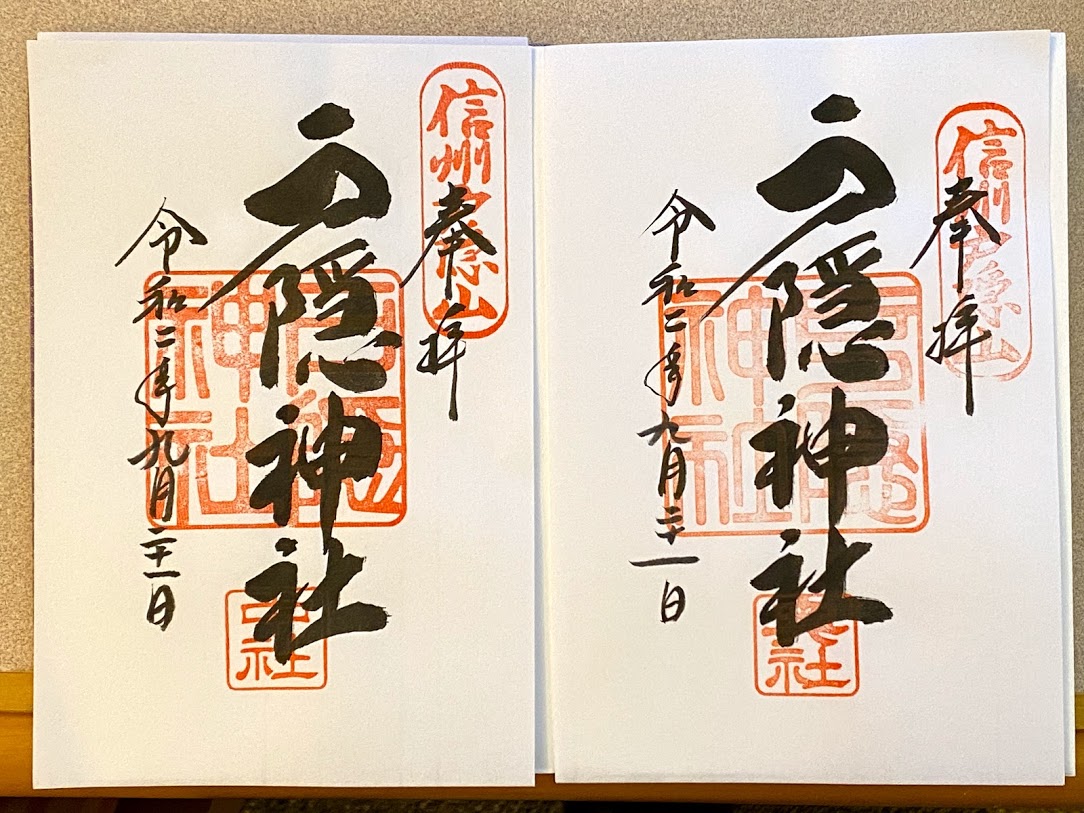 信州戸隠山
奉拝
戸隠神社
戸隠神社
中社
令和二年九月二十一日
信州戸隠山
奉拝
戸隠神社
戸隠神社
令和二年九月二十一日